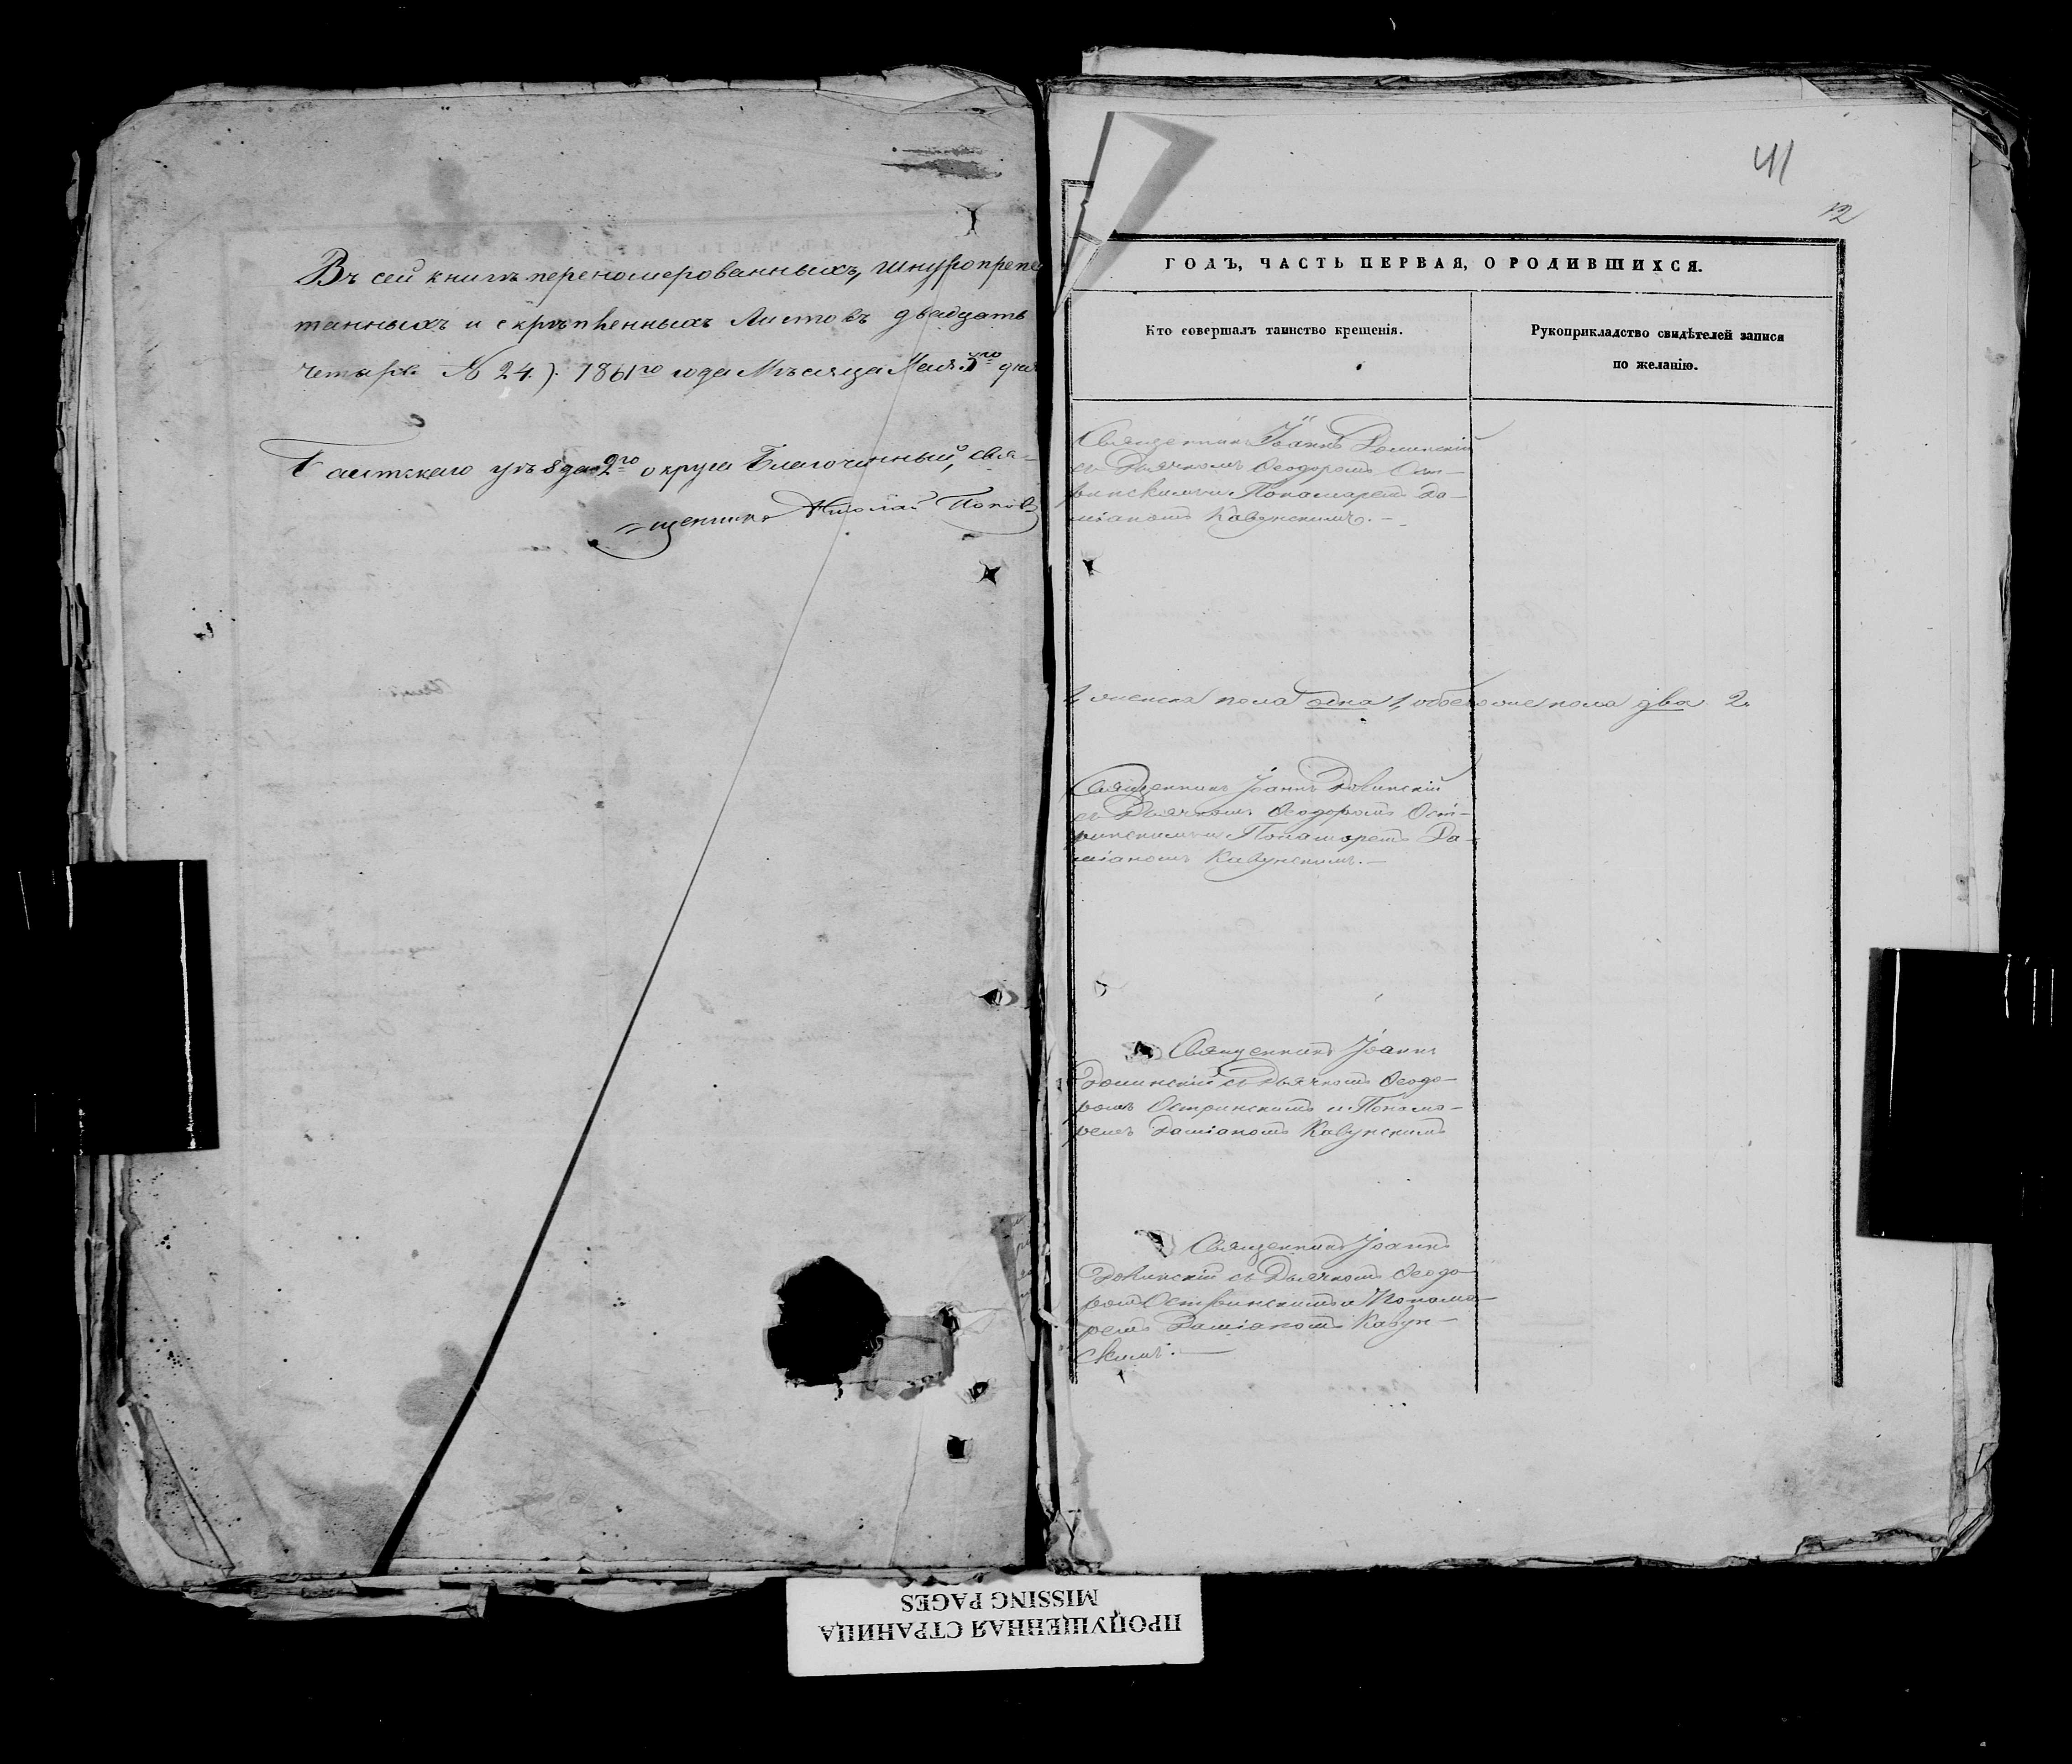 Въ сей книгѣ переномерованныхъ, шнуропрепле
танныхъ и скрѣпленныхъ Листовъ двадцать
четыре № 24.). 1861го года Мѣсяца Мая 5го дня
уѣзда 2го округа Благочинный, свя-
щенникъ Николай Попов
41
12
ГОДЪ, ЧАСТЬ ПЕРВАЯ, О РОДИВШИХСЯ.
Кто совершалъ таинство крещенія.
Рукоприкладство свидѣтелей записи
по желанію.
Священникъ Іоаннъ
съ Дьячкомъ Ѳеодоромъ Ост-
ринскимъ и Пономаремъ Да-
міаномъ Кавунскимъ. -
женска пола одна 1, обоего пола два 2.
Священникъ Іоаннъ
съ Дьячкомъ Ѳеодоромъ Ост-
ринскимъ и Пономаремъ Да-
міаномъ Кавунскимъ. -
Священникъ Іоаннъ
съ Дьячкомъ Ѳеодо-
ромъ Остринскимъ и Понома-
ремъ Даміаномъ Кавунскимъ
Священникъ Іоаннъ
съ Дьячкомъ Ѳеодо-
ромъ Остринскимъ и Понома-
ремъ Даміаномъ Кавун-
скимъ. -
MISSING PAGES
ПРОПУЩЕННАЯ СТРАНИЦА